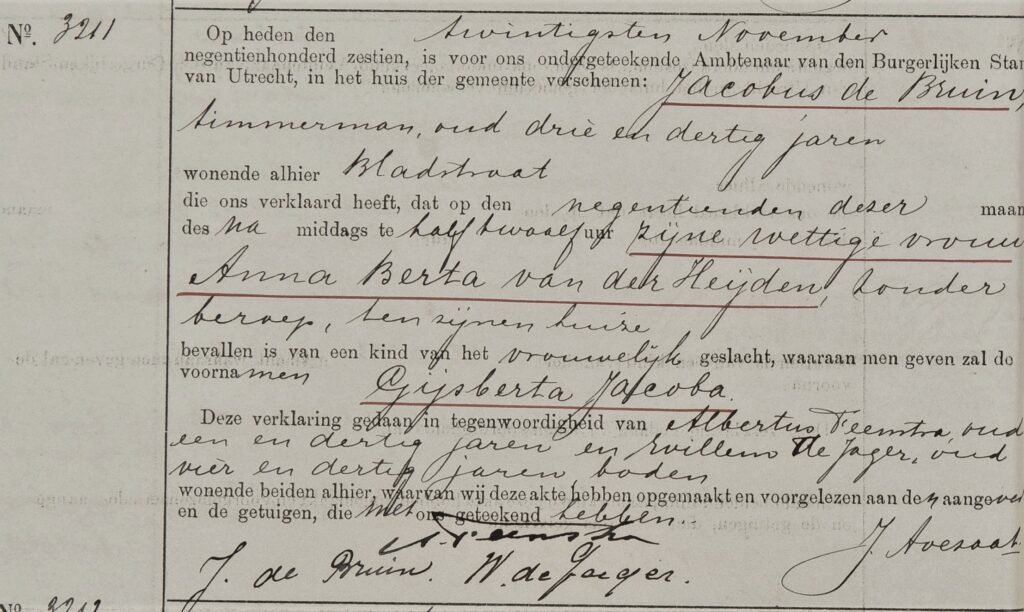 Nº. 3211
Op heden den twintigsten November
negentienhonderd zestien, is voor ons ondergeteekende Ambtenaar van den Burgerlijken Stan
van Utrecht, in het huis der gemeente verschenen: Jacobus de Bruin,
timmerman, oud drie en dertig jaren
wonende alhier Bladstraat
die ons verklaard heeft, dat op den negentienden dezer maan
des na middags te half twaalf uur zijne wettige vrouw
Anna Berta van der Heijden, zonder
beroep, ten zijnen huize
bevallen is van een kind van het vrouwelijk geslacht, waaraan men geven zal de
voornamen Gijsberta Jacoba.
Deze verklaring gedaan in tegenwoordigheid van Albertus Feenstra, oud
een en dertig jaren en Willem de Jager, oud
vier en dertig jaren boden
wonende beiden alhier, waarvan wij deze akte hebben opgemaakt en voorgelezen aan den aangeve
en de getuigen, die met ons geteekend hebben.
A. Feenstra
J. de Bruin. W. de Jaeger. J. Avezaat
Nº. 3212